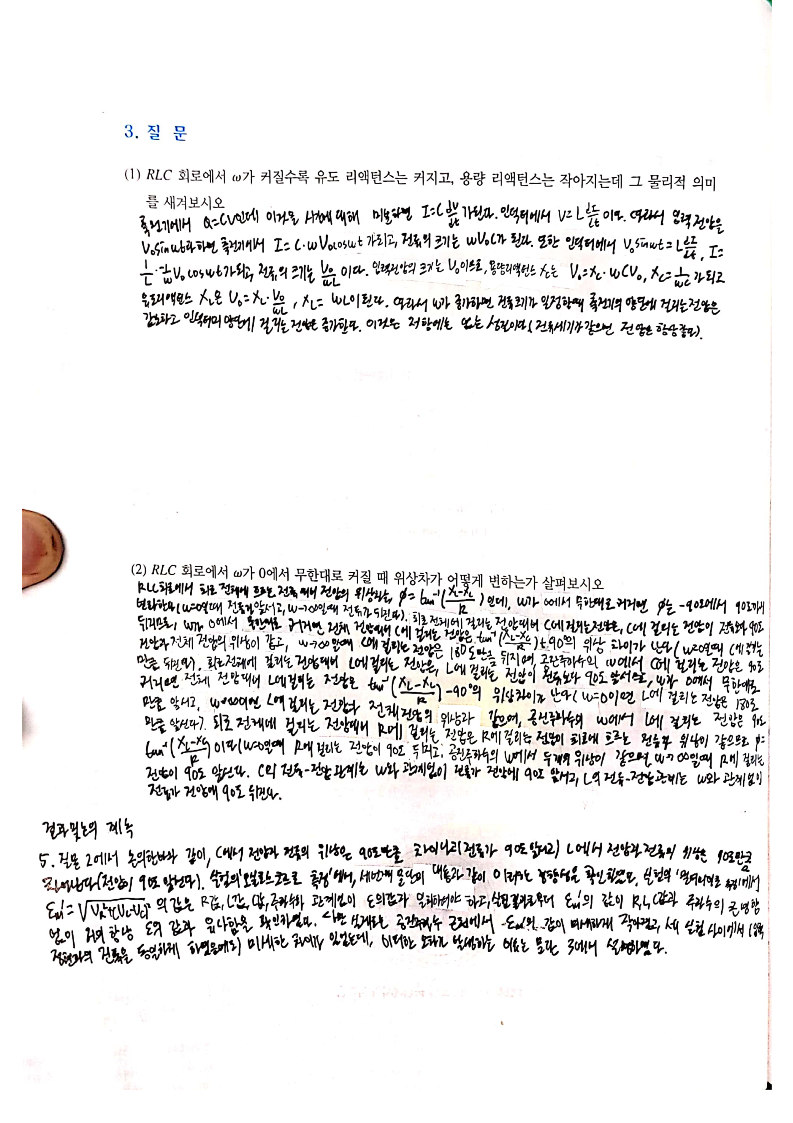 3. 질 문
(1) RLC 회로에서 ω가 커질수록 유도 리액턴스는 커지고, 용량 리액턴스는 작아지는데 그 물리적 의미
를 새겨보시오
축전기에서 Q=CV인데 이것을 시간에 대해 미분하면 I=C dV/dt 가 된다. 인덕터에서 V=L dI/dt 이다. 따라서 입력 전압을
V₀sinωt라 하면 축전기에서 I = C·ωV₀cosωt 가 되고, 전류의 크기는 ωV₀C가 된다. 또한 인덕터에서 V₀sinωt=L dI/dt, I=
1/L · 1/ω V₀cosωt가 되고, 전류의 크기는 V₀/ωL 이다. 입력전압의 크기는 V₀이므로, 용량리액턴스 Xc는 V₀=Xc·ωCV₀, Xc=1/ωC 가 되고
유도리액턴스 XL은 V₀=XL·V₀/ωL, XL=ωL이 된다. 따라서 ω가 증가하면 전류크기가 일정할때 축전기의 양단에 걸리는 전압은
감소하고 인덕터의 양단에 걸리는 전압은 증가한다. 이것은 저항에는 없는 성질이다(전류세기가 같으면 전압은 항상 같다).
(2) RLC 회로에서 ω가 0에서 무한대로 커질 때 위상차가 어떻게 변하는가 살펴보시오
RLC회로에서 회로 전체에 흐르는 전류에 대한 전압의 위상차는, φ=tan⁻¹(XL-Xc/R) 인데, ω가 0에서 무한대로 커지면 φ는 -90도에서 90도까지
변화한다(ω=0일때 전류가 앞서고, ω→∞일때 전류가 뒤진다). 회로 전체에 걸리는 전압에 대해 C에 걸리는 전압은, C에 걸리는 전압이 전류보다 90도
뒤지므로, ω가 0에서 무한대로 커지면 전체 전압에 대해 C에 걸리는 전압은 tan⁻¹(XL-Xc/R)+90의 위상 차이가 난다(ω=0일때 C에 걸리는
전압과 전체 전압의 위상이 같고, ω→∞일때 C에 걸리는 전압은 180도만큼 뒤지며, 공진주파수의 ω에서 C에 걸리는 전압은 90도
만큼 뒤진다). 회로전체에 걸리는 전압에 대해 L에 걸리는 전압은, L에 걸리는 전압이 전류보다 90도 앞서므로, ω가 0에서 무한대로
커지면 전체 전압에 대해 L에 걸리는 전압은 tan⁻¹(XL-Xc/R)-90의 위상차이가 난다(ω=0이면 L에 걸리는 전압은 180도
만큼 앞서고, ω→∞이면 L에 걸리는 전압과 전체 전압의 위상과 같으며, 공진주파수의 ω에서 L에 걸리는 전압은 90도
만큼 앞선다). 회로 전체에 걸리는 전압에 대해 R에 걸리는 전압은 R에 걸리는 전압이 회로에 흐르는 전류와 위상이 같으므로 φ=
tan⁻¹(XL-Xc/R) 이다(ω=0일때 R에 걸리는 전압이 90도 뒤지고, 공진주파수의 ω에서 두개의 위상이 같으며, ω→∞일때 R에 걸리는
전압이 90도 앞선다. C의 전류-전압 관계는 ω와 관계없이 전류가 전압에 90도 앞서고, L의 전류-전압관계는 ω와 관계없이
전류가 전압에 90도 뒤진다.
결과 및 논의 계속
5. 질문 2에서 논의한바와 같이, C에서 전압과 전류의 위상은 90도만큼 차이나고(전류가 90도 앞서고) L에서 전압과 전류의 위상은 90도만큼
차이난다(전압이 90도 앞선다). 실험의 '오실로스코프로 측정'에서, 세번째 문단의 내용과 같이 이러한 경향성을 확인하였다. 실험의 '멀티미터로 측정'에서
의 값은 R값, L값, C값, 주파수와 관계없이 ε의 값과 일치하여야 하고, 실험결과로부터 의 값이 R, L, C값과 주파수의 큰 영향
없이 거의 항상 ε의 값과 유사함을 확인하였다. 다만 실제로는 공진주파수 근처에서 값이 미세하게 작아졌고, 세 실험 사이에서
전류를 동일하게 하였음에도) 미세한 차이가 있었는데, 이러한 오차가 발생하는 이유는 문단 3에서 설명하였다.